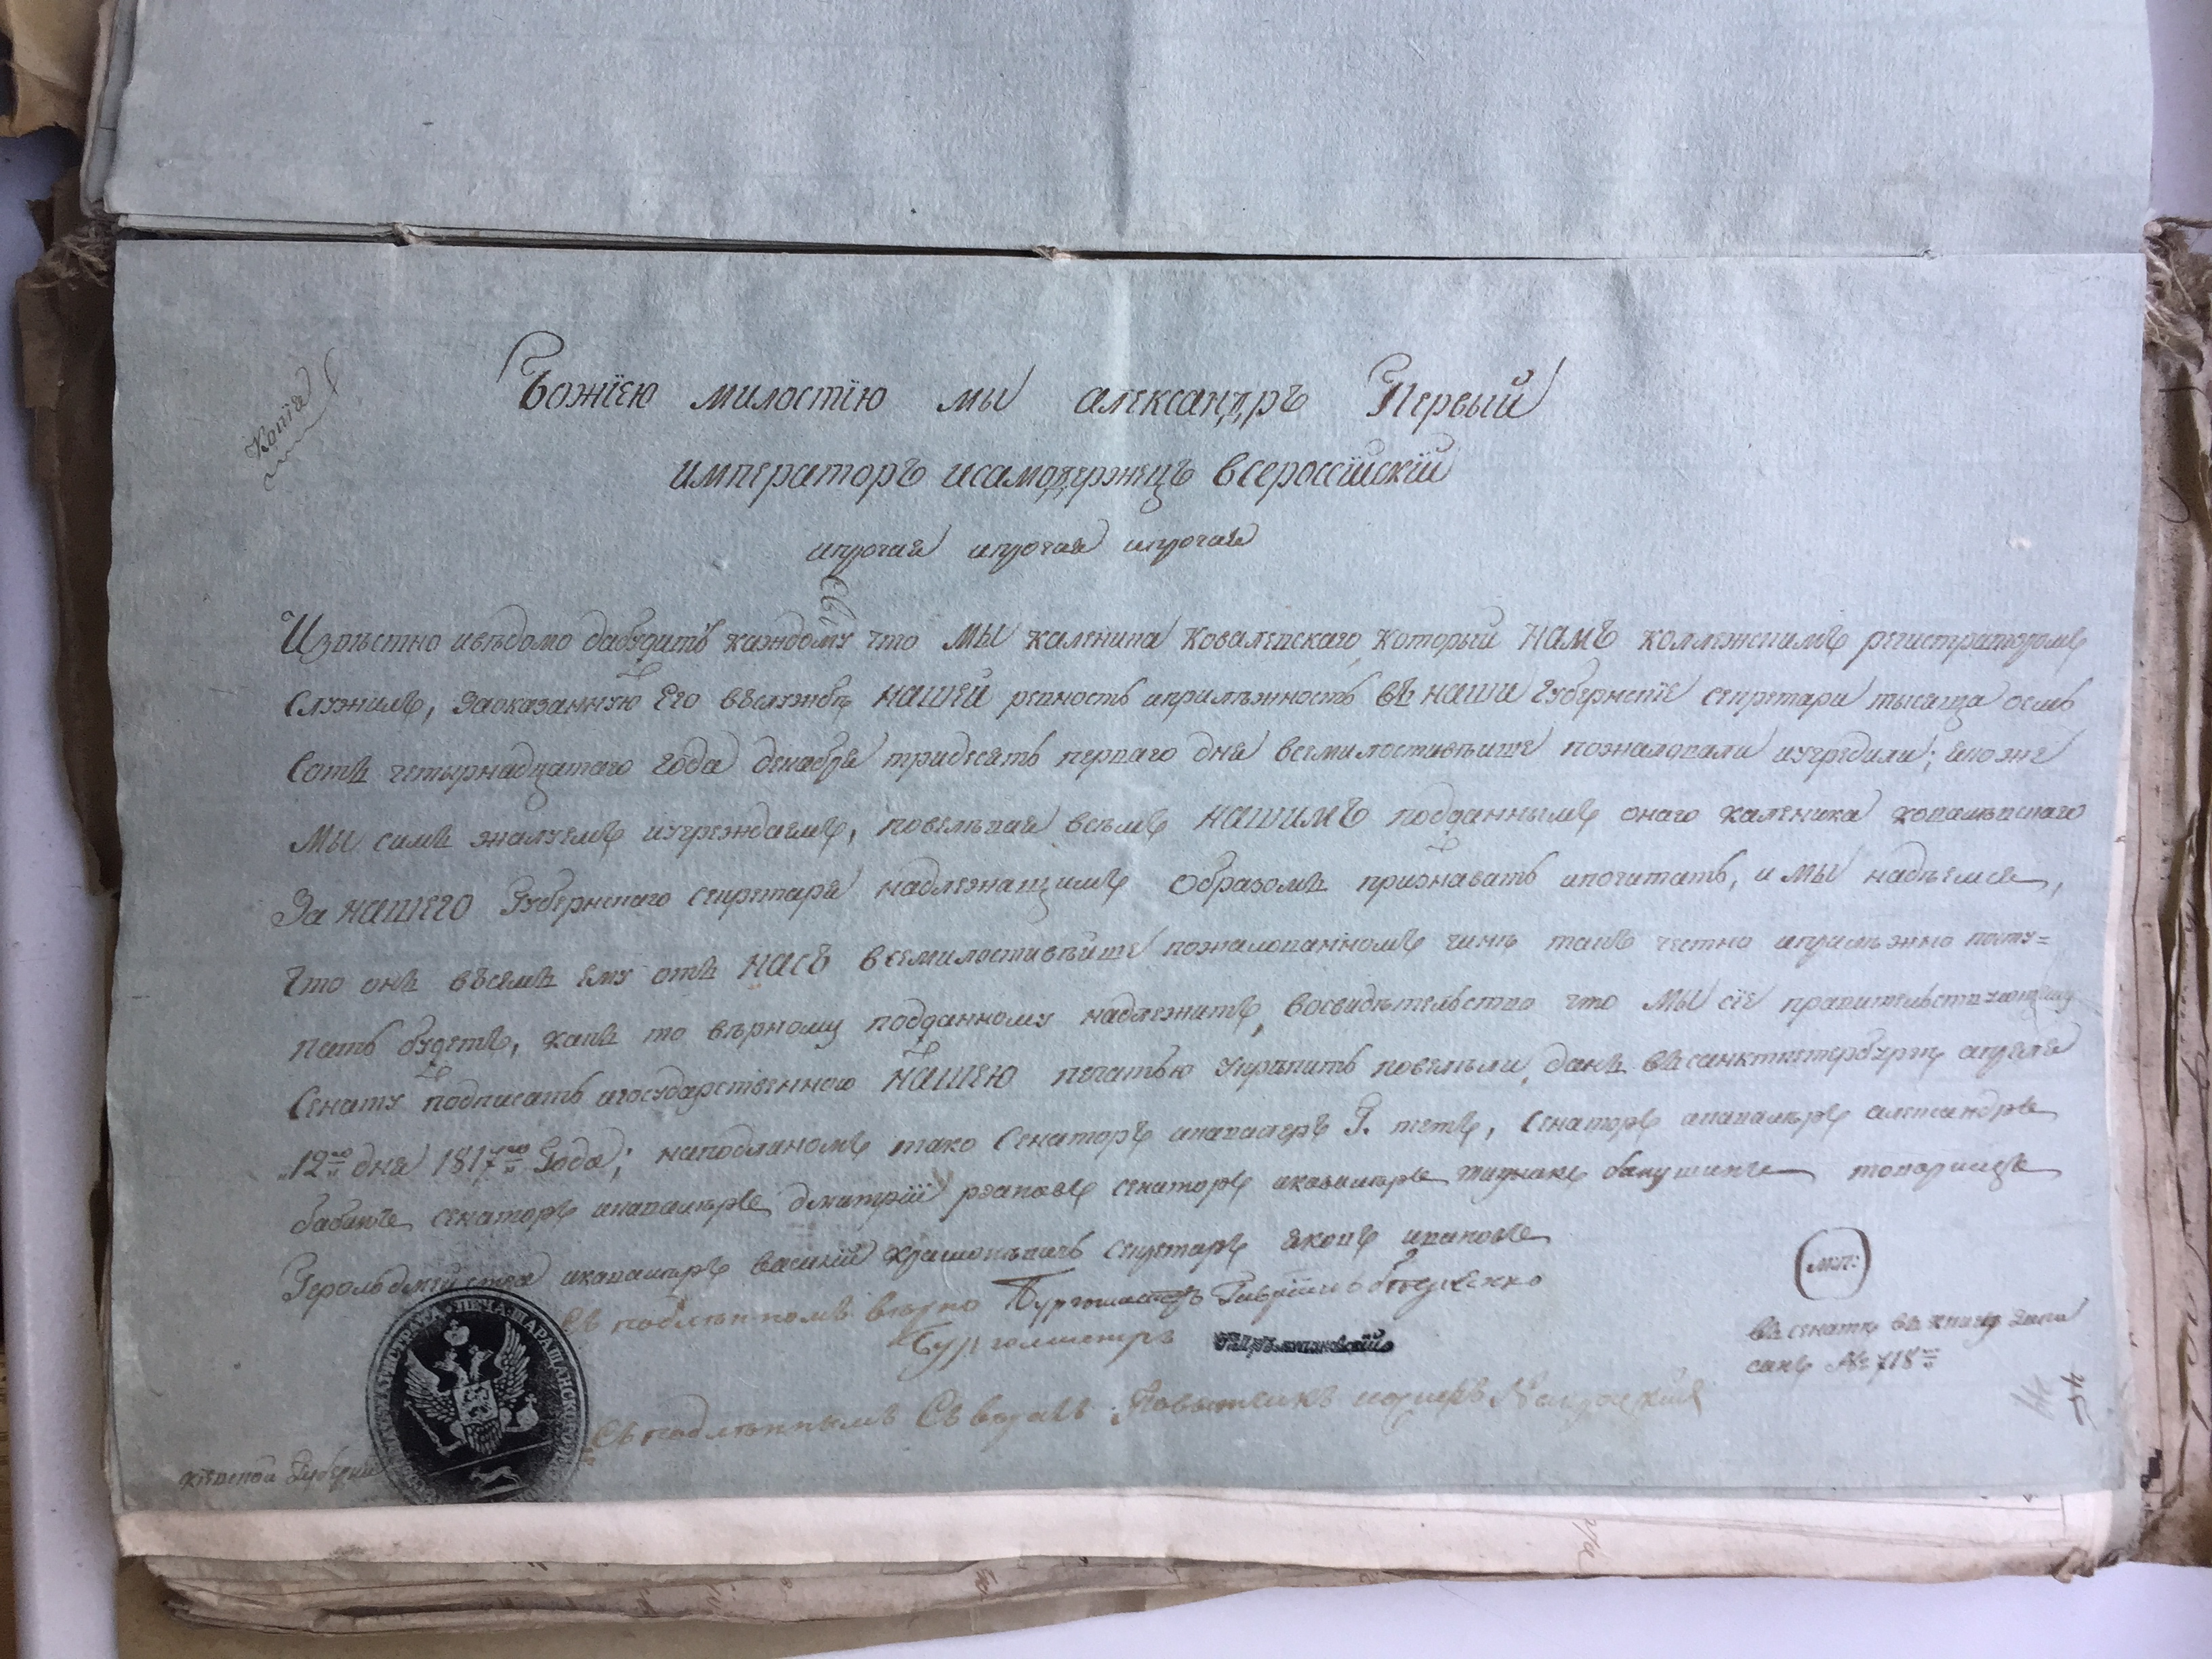 Копїя
Божїею милостїю мы александръ Первый
императоръ исамодержецъ всероссїйскїй
ипрочая ипрочая ипрочая
Извѣстно ивѣдомо дабудитъ каждому что МЫ каленика Ковалевскаго который НАМЪ коллежскимъ регистраторомъ
служилъ, заоказанную Его вѣслужбѣ НАШЕЙ ревность иприлѣжность въ наши Губернскїе секретари тысяща осмь
сотъ четырнадцатаго года декабря тридесять перваго дня всемилостивѣише пожаловали иучредили; якоже
МЫ симъ жалуемъ иучреждаемъ, повелѣвая всѣмъ НАШИМЪ подданнымъ онаго каленика ковалевскаго
За НАШЕГО Губернскаго секретаря надлежащимъ Образомъ признавать ипочитать, и МЫ надѣемся,
Что онъ въсемъ ему отъ НАСЪ всемилостивѣише пожалованномъ чинѣ такъ честно иприлѣжно посту=
пать будетъ, какъ то вѣрному подданному надлежитъ, восвидѣтельство что МЫ сїе правительствующему
Сенату подписать игосударственною НАШЕЮ печатью укрѣпить повелѣли, данъ въсанктпетербургѣ апреля
12го дня 1817го Года; наподлиномъ тако Сенаторъ икавалеръ Г. тетъ, Сенаторъ икавалеръ александръ
сенаторъ икавалеръ дмитрїй сенаторъ икавалеръ товарищъ
Герольдмейстера икавалеръ василїй секретарь яковъ ивановъ
Съ подлѣнномъ вѣрно Бургомистръ Гаврїилъ
Бургомистръ
М:П:
въ сенатѣ въ книгу запи
санъ № 718
Съ подлѣннымъ Свѣрялъ Повытчикъ
кїевской Губернїи
45